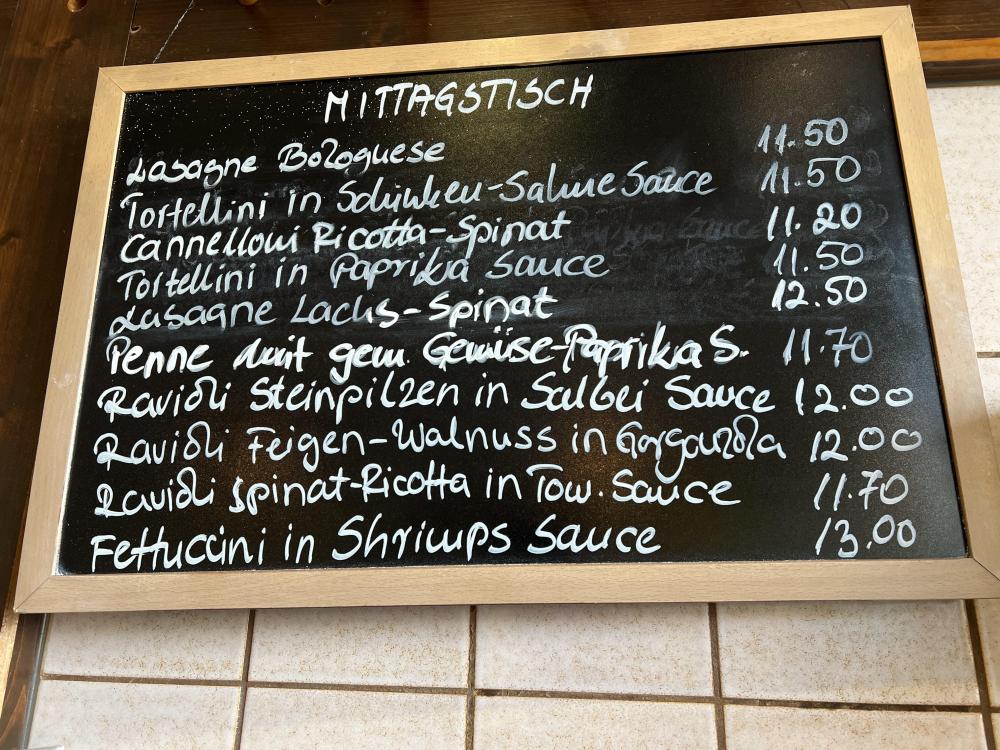 MITTAGSTISCH
Lasagne Bolognese 11.50
Tortellini in Schinken-Sahne Sauce 11.50
Cannelloni Ricotta-Spinat 11.20
Tortellini in Paprika Sauce 11.50
Lasagne Lachs-Spinat 12.50
Penne mit gem. Gemüse-Paprika S. 11.70
Ravioli Steinpilzen in Salbei Sauce 12.00
Ravioli Feigen-Walnuss in Gorgonzola 12.00
Ravioli Spinat-Ricotta in Tom. Sauce 11.70
Fettuccini in Shrimps Sauce 13.00